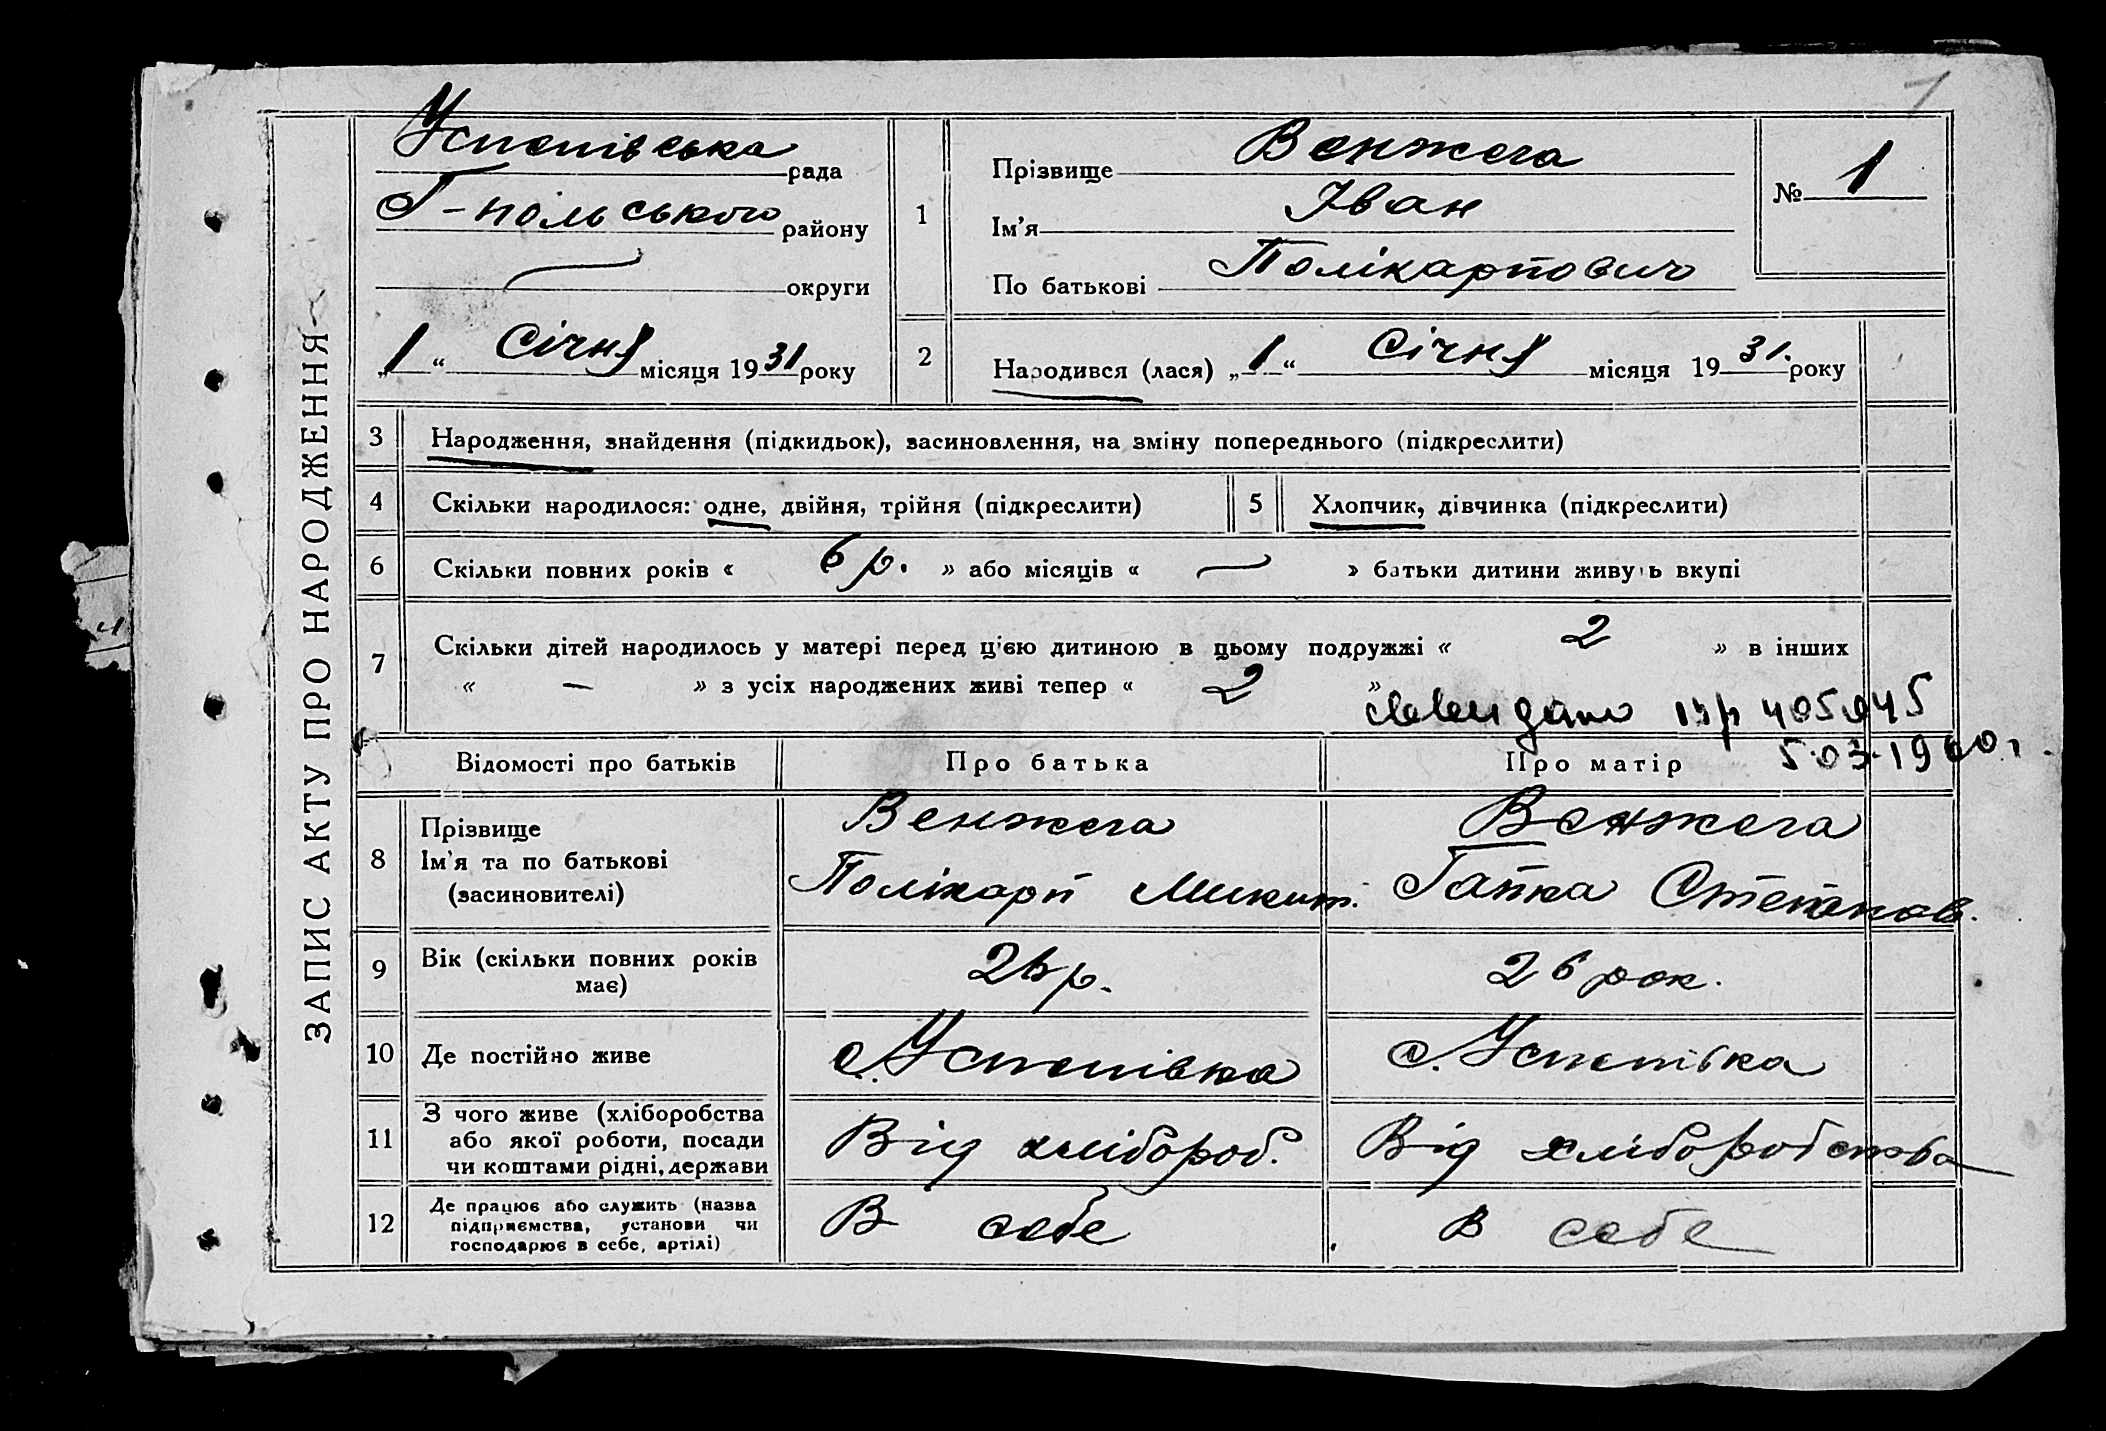 1
ЗАПИС АКТУ ПРО НАРОДЖЕННЯ
Успенівська рада
Г-польського району
округи
„1“ Січня місяця 1931 року
1
Прізвище Венжега
Ім'я Іван
По батькові Полікарпович
№ 1
2
Народився (лася) „1“ Січня місяця 1931. року
3 Народження, знайдення (підкидьок), засиновлення, на зміну попереднього (підкреслити)
4 Скільки народилося: одне, двійня, трійня (підкреслити)
5 Хлопчик, дівчинка (підкреслити)
6 Скільки повних років « 6 р. » або місяців « — » батьки дитини живуть вкупі
7 Скільки дітей народилось у матері перед ц'єю дитиною в цьому подружжі « 2 » в інших
« — » з усіх народжених живі тепер « 2 »
405045
5.03.1960г.
Відомості про батьків Про батька Про матір
8 Прізвище Венжега Венжега
Ім'я та по батькові Полікарп Микит. Гапка Степанов.
(засиновителі)
9 Вік (скільки повних років має) 26 р. 26 рок.
10 Де постійно живе с. Успенівка с. Успенівка
11 З чого живе (хліборобства
або якої роботи, посади Від хлібороб. Від хліборобства
чи коштами рідні, держави
12 Де працює або служить (назва
підприємства, установи чи В себе В себе
господарює в себе, артілі)